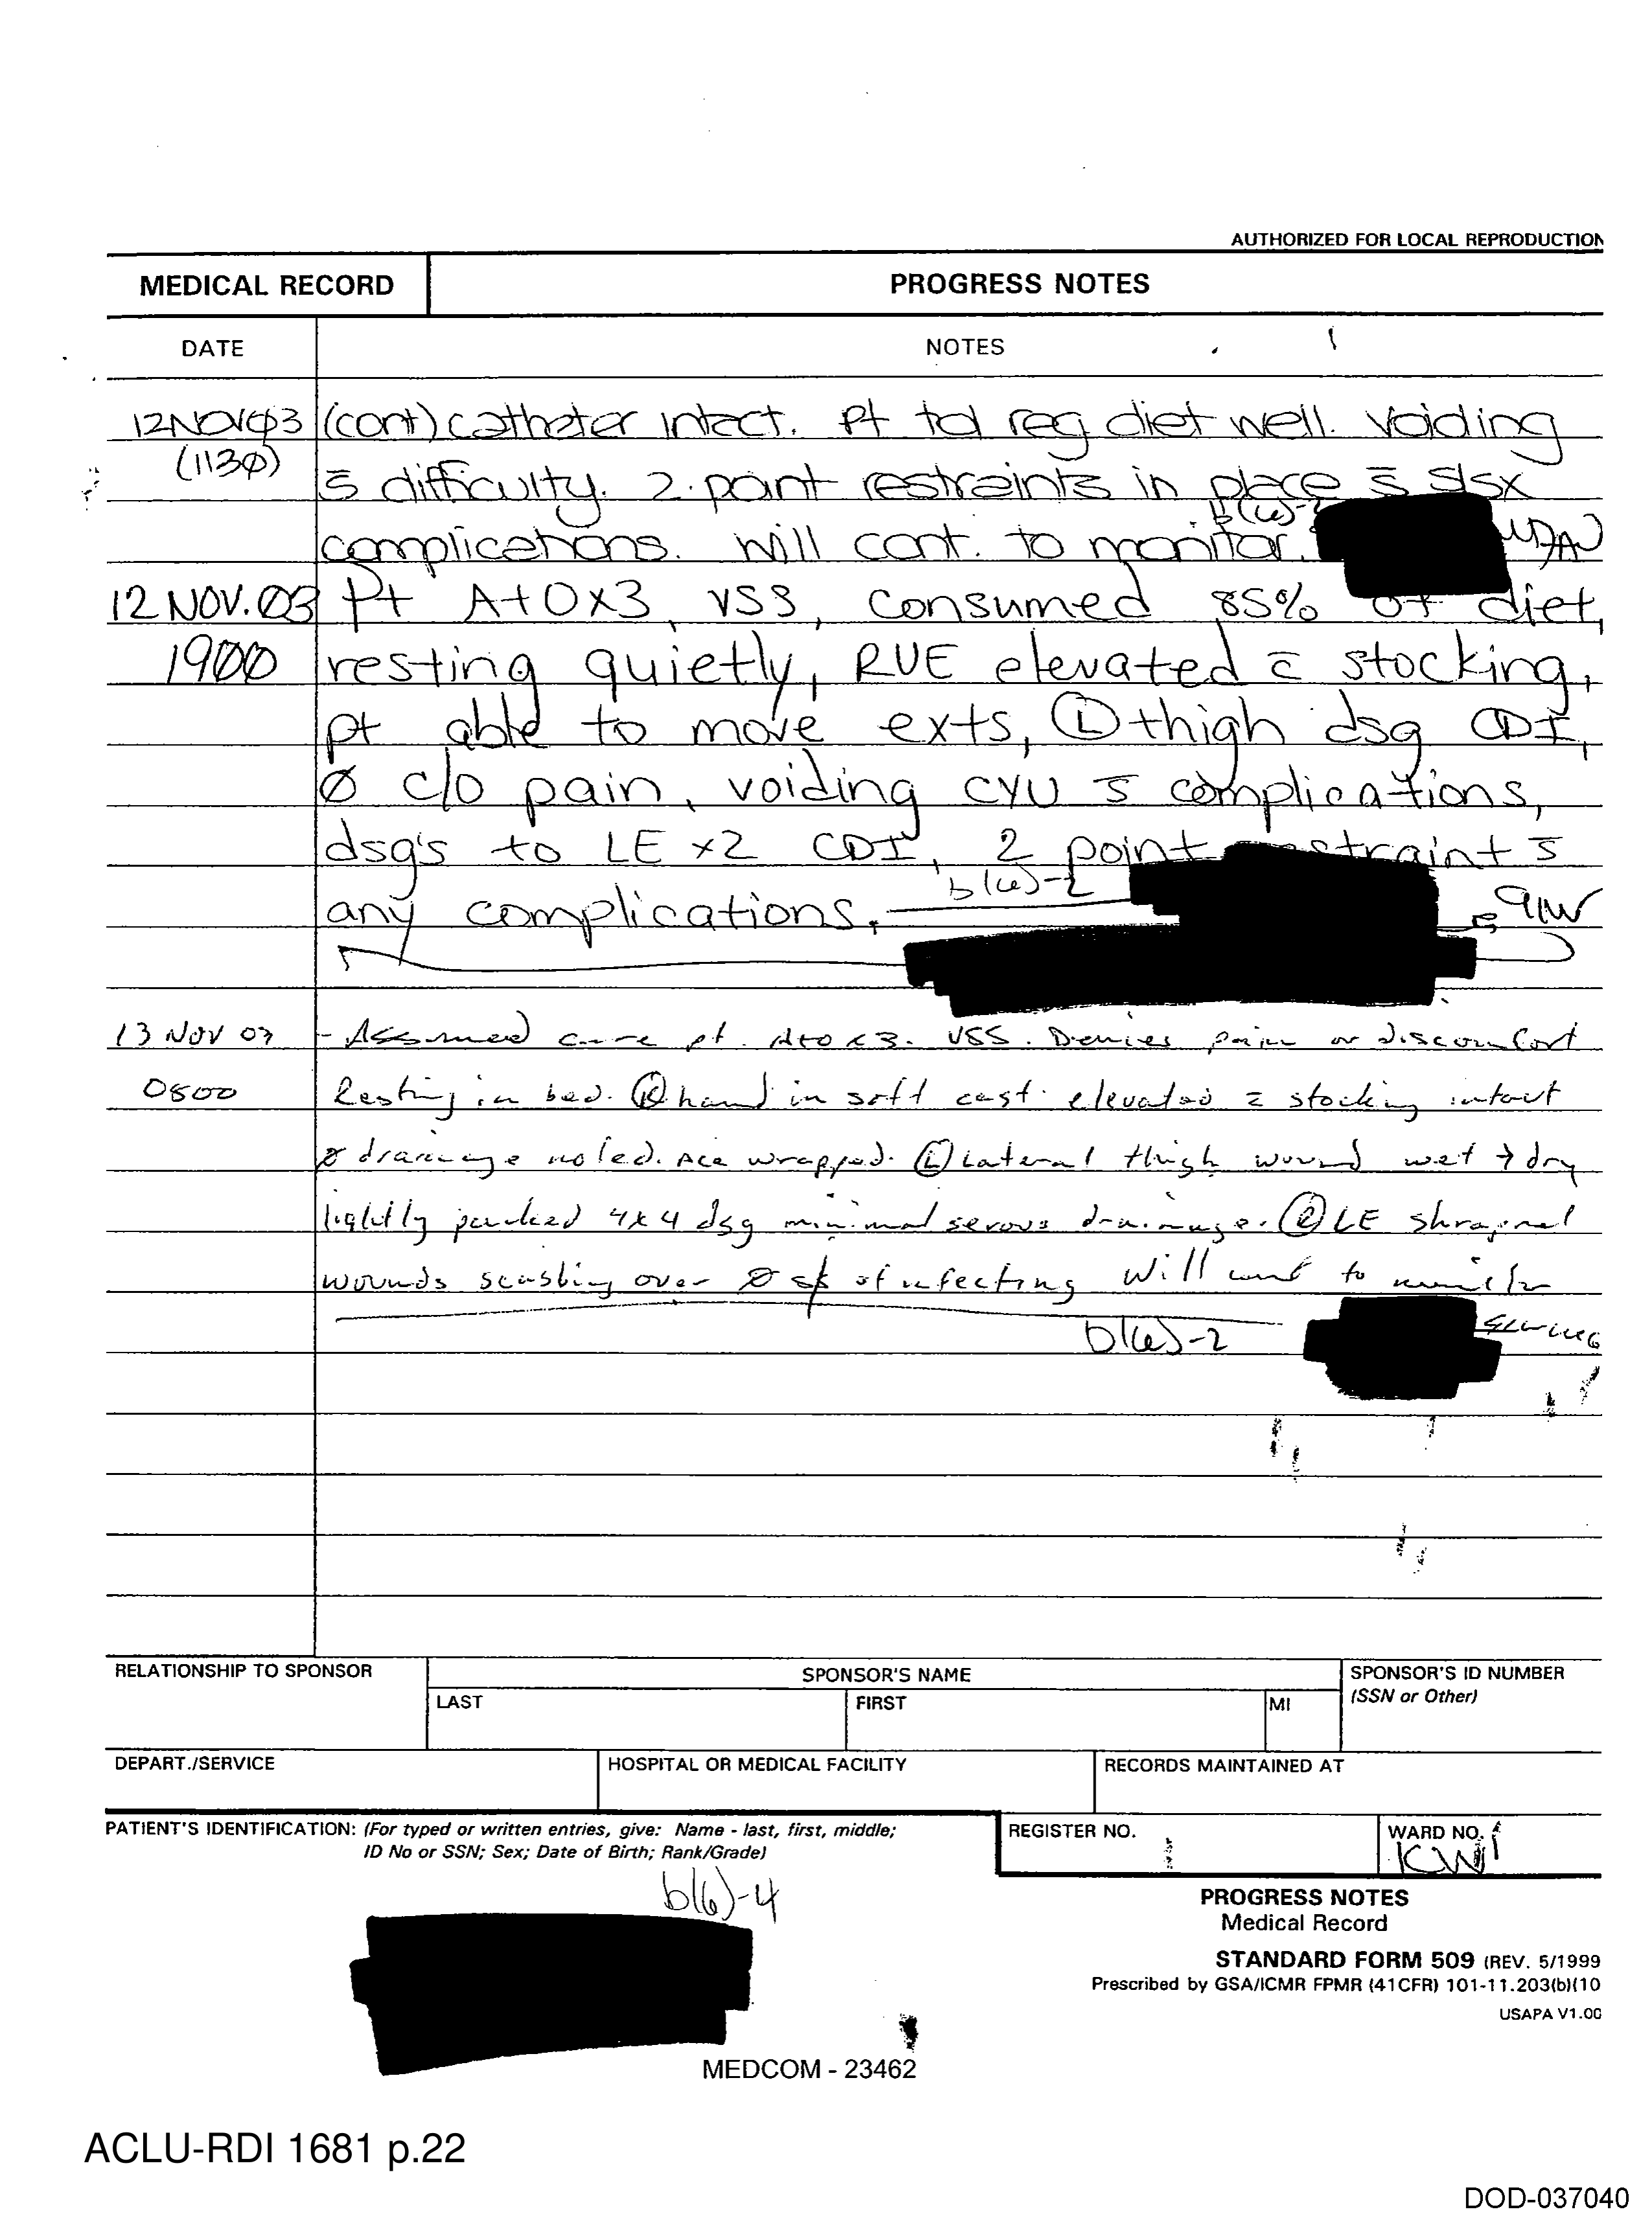 AUTHORIZED FOR LOCAL REPRODUCTION
MEDICAL RECORD
PROGRESS NOTES
DATE
NOTES
12NOV03 (cont) catheter intact. Pt tol reg diet well. Voiding
(1130) s̄ difficulty. 2-point restraints in place s̄ s/sx
b(6)-2
complications. Will cont. to monitor.
12 NOV. 03 Pt A+Ox3, VSS, consumed 85% of diet,
1900 resting quietly, RUE elevated c̄ stocking,
pt able to move exts, Ⓛ thigh dsg CDI,
Ø c/o pain, voiding CYU s̄ complications,
dsg's to LE x2 CDI, 2 point restraint s̄
b(6)-2
any complications.
13 NOV 03 - Assumed care pt. A+O x3. VSS. Denies pain or discomfort
0800 Resting in bed. Ⓡ hand in soft cast elevated c̄ stocking intact
Ø drainage noted. Ace wrapped. Ⓛ Lateral thigh wound wet → dry
lightly packed 4x4 dsg minimal serous drainage. Ⓡ LE shrapnel
wounds scabbing over Ø of infecting Will cont to monitor
b(6)-2
RELATIONSHIP TO SPONSOR
SPONSOR'S NAME
SPONSOR'S ID NUMBER
(SSN or Other)
LAST
FIRST
MI
DEPART./SERVICE
HOSPITAL OR MEDICAL FACILITY
RECORDS MAINTAINED AT
PATIENT'S IDENTIFICATION: (For typed or written entries, give: Name - last, first, middle;
ID No or SSN; Sex; Date of Birth; Rank/Grade)
REGISTER NO.
WARD NO.
ICW1
b(6)-4
PROGRESS NOTES
Medical Record
STANDARD FORM 509 (REV. 5/1999
Prescribed by GSA/ICMR FPMR (41CFR) 101-11.203(b)(10
USAPA V1.00
MEDCOM - 23462
ACLU-RDI 1681 p.22
DOD-037040